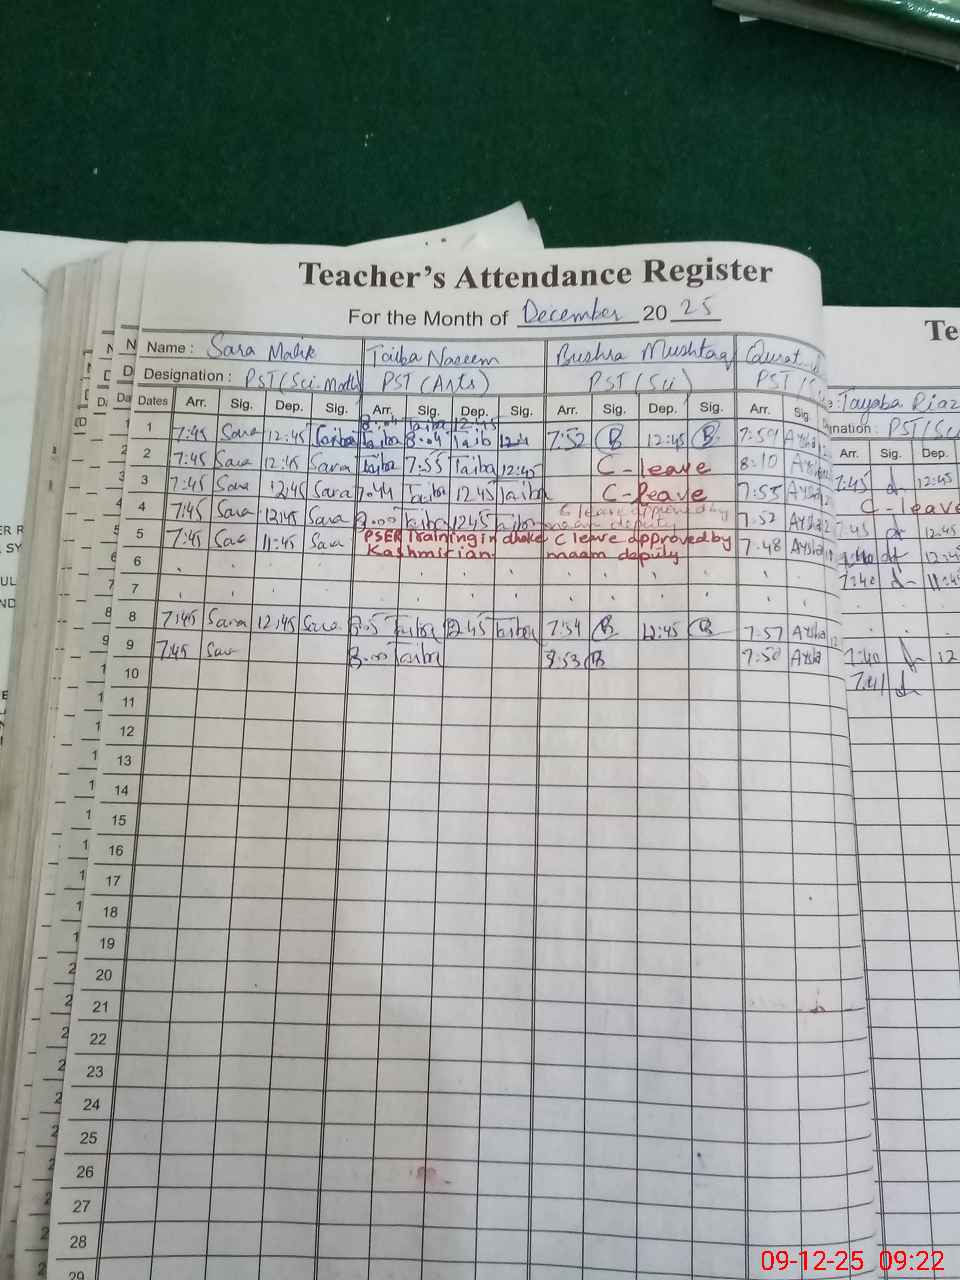 Teacher's Attendance Register
For the Month of December 2025
Te
Name : Sara Malik Taiba Naseem Bushra Mushtaq Qurat
Designation : PST (Sci-Math) PST (Arts) PST (Sci) PST
Tayaba Riaz
nation : PST (Sci
Dates Arr. Sig. Dep. Sig. Arr. Sig. Dep. Sig. Arr. Sig. Dep. Sig. Arr. Sig.
Arr. Sig. Dep.
8:04 Taiba 12:45
1 7:45 Sara 12:45 Taiba 8:04 Taib 12:4 7:52 B 12:45 B 7:59 Aysha
2 7:45 Sara 12:45 Sara Taiba 7:55 Taiba 12:45 C-leave 8:10 Aysha 7:45 12:45
3 7:45 Sara 12:45 Sara 7:44 Taiba 12 45 Taiba C-leave 7:55 Aysha C-leave
4 7:45 Sara 12:45 Sara 8:00 Taiba 12 45 Taiba C leave approved by 7:52 Aysha 7:45 12:45
maam deputy
5 7:45 Sara 11:45 Sara PSER Training in dhoke C leave approved by 7:48 Aysha 12:45
Kashmirian. maam deputy
6 7:40 11:45
7
8 7:45 Sara 12:45 Sara Taiba 12 45 Taiba 7:54 B 12:45 B 7:57 Aysha
9 7:45 Sara 8:00 Taiba 8:53 B 7:50 Aysha 7:40 12
10 7:41
11
12
13
14
15
16
17
18
19
20
21
22
23
24
25
26
27
28
29
09-12-25 09:22